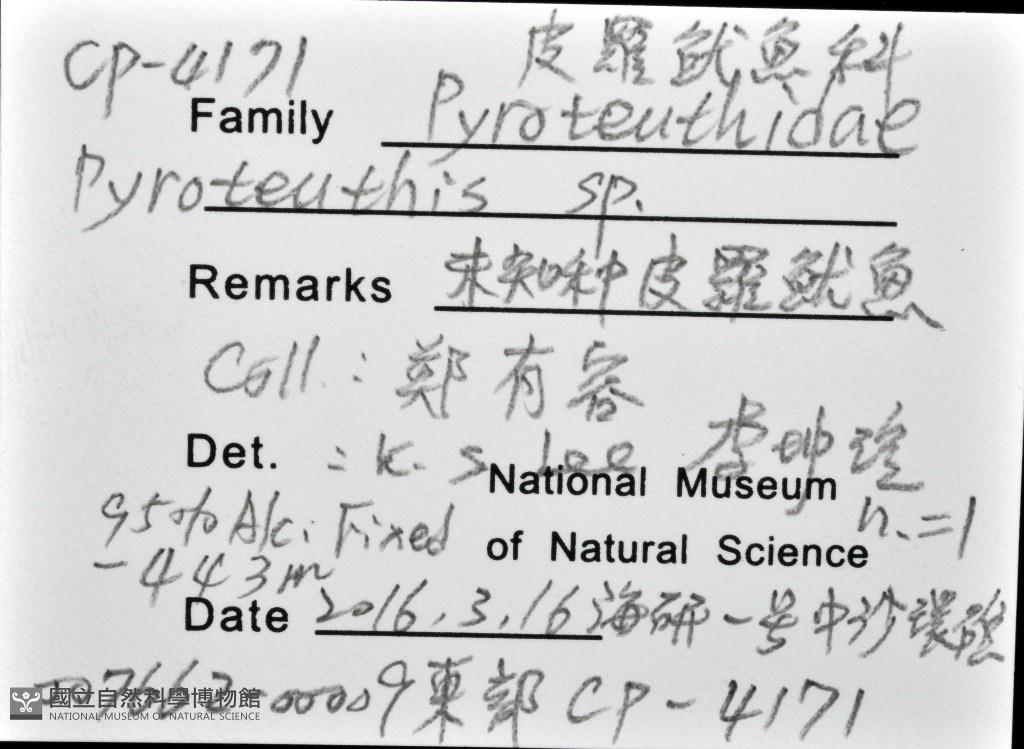 CP-4171 皮羅魷魚科
Family Pyroteuthidae
Pyroteuthis sp.
Remarks 未知种皮羅魷魚
Coll.: 鄭有容
Det. : K. S. Lee 李坤瑄
National Museum
95% Alc. Fixed n.=1
of Natural Science
-443m
Date 2016.3.16 海研一号中沙環礁
-00009 東部 CP-4171
國立自然科學博物館
NATIONAL MUSEUM OF NATURAL SCIENCE